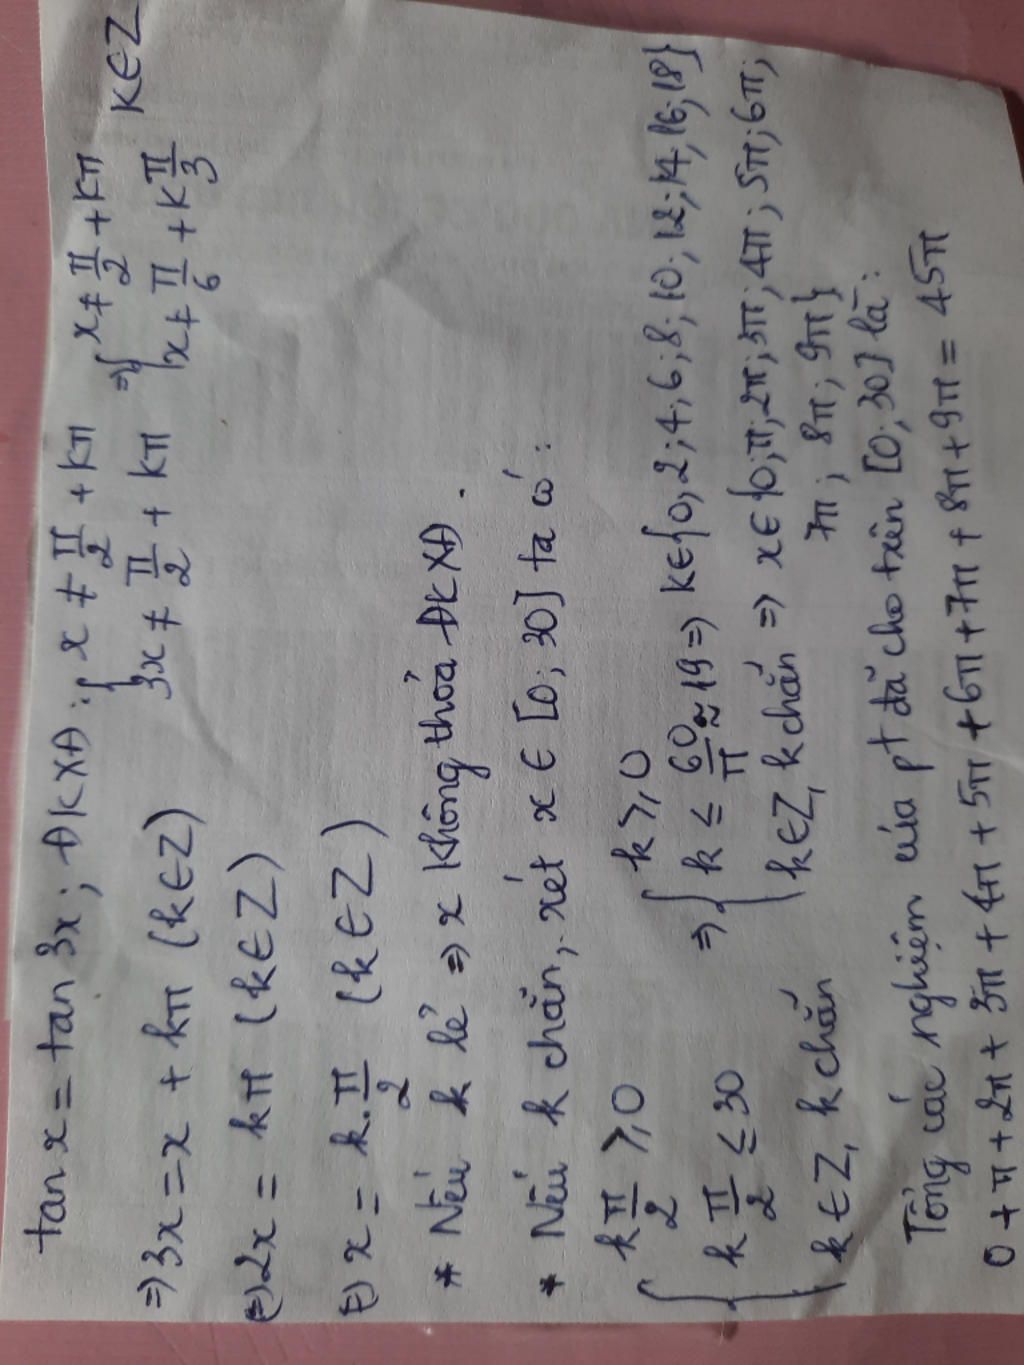 tan x = tan 3x ; ĐKXĐ: { x ≠ π/2 + kπ ⇒ { x ≠ π/2 + kπ
3x ≠ π/2 + kπ x ≠ π/6 + k π/3 k∈Z
⇒ 3x = x + kπ (k∈Z)
⇔ 2x = kπ (k∈Z)
⇔ x = k.π/2 (k∈Z)
* Nếu k lẻ ⇒ x không thỏa ĐKXĐ.
* Nếu k chẵn, xét x ∈ [0; 30] ta có:
{ k π/2 ⩾ 0 ⇒ { k ⩾ 0
k π/2 ≤ 30 k ≤ 60/π ≈ 19 ⇒ k∈{0, 2; 4; 6; 8; 10; 12; 14; 16; 18}
k ∈ Z, k chẵn k∈Z, k chẵn ⇒ x∈{0; π; 2π; 3π; 4π; 5π; 6π;
7π; 8π; 9π}
Tổng các nghiệm của pt đã cho trên [0; 30] là:
0 + π + 2π + 3π + 4π + 5π + 6π + 7π + 8π + 9π = 45π